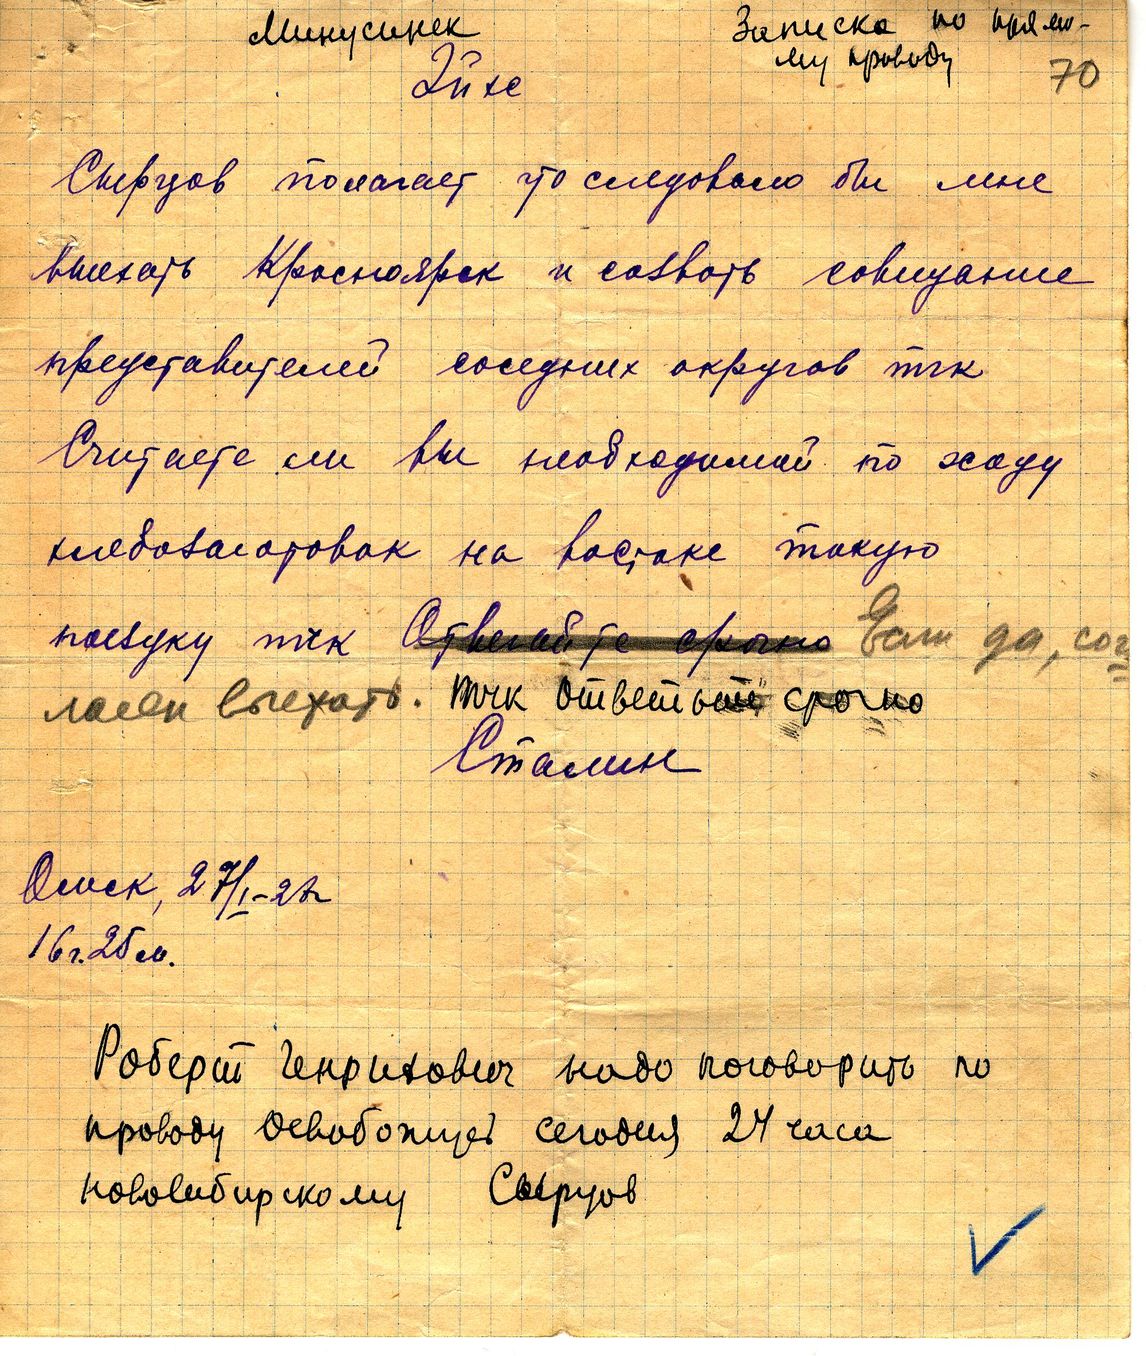 Минусинск
Записка по прямо-
му проводу
70
Эйхе
Сырцов полагает что следовало бы мне
выехать Красноярск и созвать совещание
представителей соседних округов тчк
Считаете ли вы необходимой по ходу
хлебозаготовок на востоке такую
поездку тчк Отвечайте срочно Если да, сог
ласен выехать. тчк ответьте срочно
Сталин
Омск, 27/I-28
16 ч. 25 м.
Роберт Генрихович надо поговорить по
проводу Освобожусь сегодня 24 часа
новосибирскому Сырцов